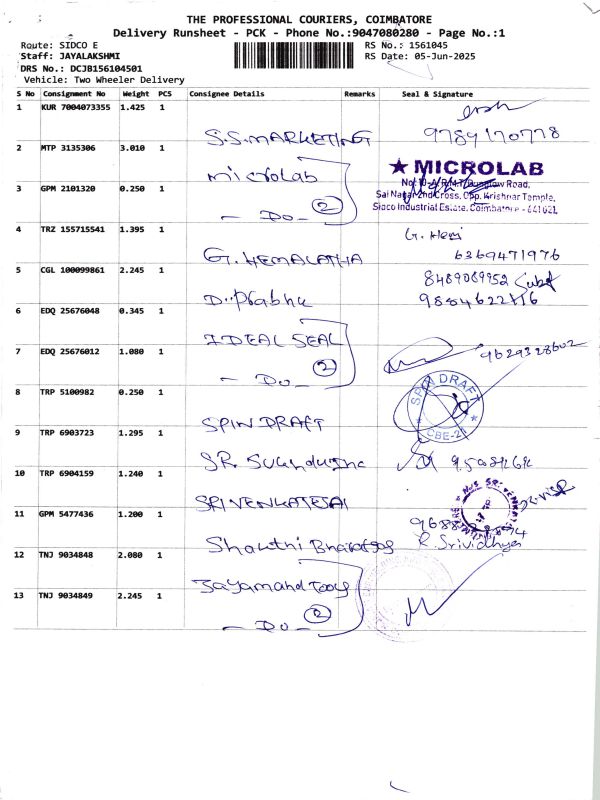 THE PROFESSIONAL COURIERS, COIMBATORE
Delivery Runsheet - PCK - Phone No.:9047080280 - Page No.:1
Route: SIDCO E RS No.: 1561045
Staff: JAYALAKSHMI RS Date: 05-Jun-2025
DRS No.: DCJB156104501
Vehicle: Two Wheeler Delivery
S No Consignment No Weight PCS Consignee Details Remarks Seal & Signature
1 KUR 7004073355 1.425 1
S.S.MARKETING 9789170778
2 MTP 3135306 3.010 1
Microlab
★ MICROLAB
3 GPM 2101320 0.250 1
Sai Nagar 2nd Cross, Opp. Krishnar Temple,
- Do - 2 Sidco Industrial Estate, Coimbatore - 641021.
4 TRZ 155715541 1.395 1 G. Hemi
G. HEMALATHA 6369471976
5 CGL 100099861 2.245 1 8489069952
D. Prabhu
6 EDQ 25676048 0.345 1
IDEAL SEAL
7 EDQ 25676012 1.080 1 9629328602
- Do - 2
8 TRP 5100982 0.250 1 SPIN DRAFT
SPIN DRAFT CBE-21
9 TRP 6903723 1.295 1
SR.
10 TRP 6904159 1.240 1
SRI VENKATESAI
11 GPM 5477436 1.200 1
Shanthi R. Srividhya
12 TNJ 9034848 2.080 1
13 TNJ 9034849 2.245 1
- Do - 2